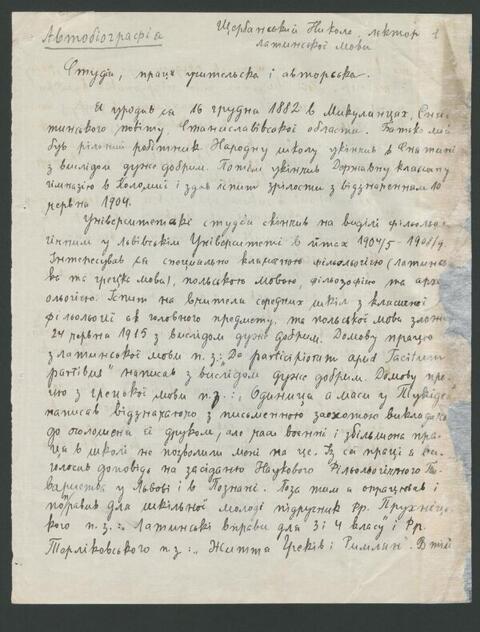 Автобіографія
Щербанський Никола, лєктор 1
латинської мови
Студії, праця учительска і авторська.
Я уродив ся 16 грудня 1882 в Микулинцях, Сня-
тинського повіту, Станиславівської области. Батько мій
був рільний робітник. Народну школу укінчив в Снятині
з вислідом дуже добрим. Потім укінчив Державну клясичну
гімназію в Коломиї і здав іспит зрілости з відзначенням 10
червня 1904.
Університетські студії скінчив на виділі фільольо-
гічним у Львівскім Університеті в літах 1904/5 - 1908/9.
Інтересував ся спеціяльно клясичною фільольогією (латинсь-
ка та грецка мова), польською мовою, фільозофією та архе-
ольогією. Іспит на вчителя середних шкіл з клясичної
фільольогії як головного предмету, та польської мови зложив
24 червня 1915 з вислідом дуже добрим. Домову працю
з латинської мови п.з: „De participiorum apud Tacitum
partibus" написав з вислідом дуже добрим. Домову пра-
цю з грецкої мови п.з.: „Одиниця а маси у Тукідіда"
написав відзначаючо з письменною заохотою викладача
до оголошення її друком, але часи воєнні і збільшена пра-
ця в школі не позволили мені на це. Із сеї праці я ви-
голосив доповідь на засіданю Наукового Фільольогічного То-
вариства у Львові і в Познані. Поза тим я опрацював і
поправив для шкільної молоді підручник Фр. Прухніць-
кого п.з.: „Латинські вправи для 3 і 4 класу" і Фр.
Терліковського п.з: „Життя Греків і Римлян". В тій